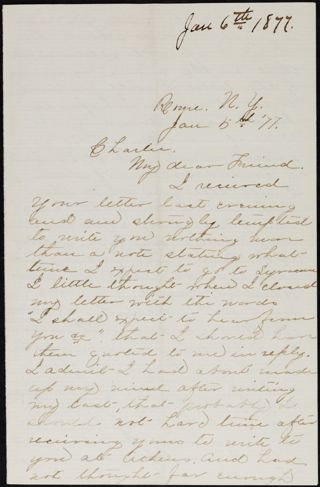 Jan 6th 1877.
Rome. N. Y.
Jan 6th '77.
Charlie.
My dear Friend.
I received
your letter last evening
and am strongly tempted
to write you nothing more
than a note stating what
time I expect to go to Syracuse
I little thought when I closed
my letter with the words
"I shall expect to hear from
you &c". that I should have
them quoted to me in reply.
I admit I had about made
up my mind after writing
my last, that probably
should not have time after
receiving yours to write to
you at and had
not thought far enough